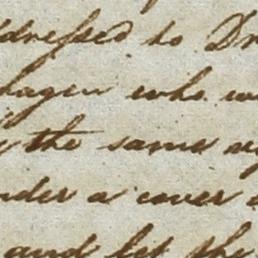 dressed to Dr
hagen who w
the same
nder a cover
and let the